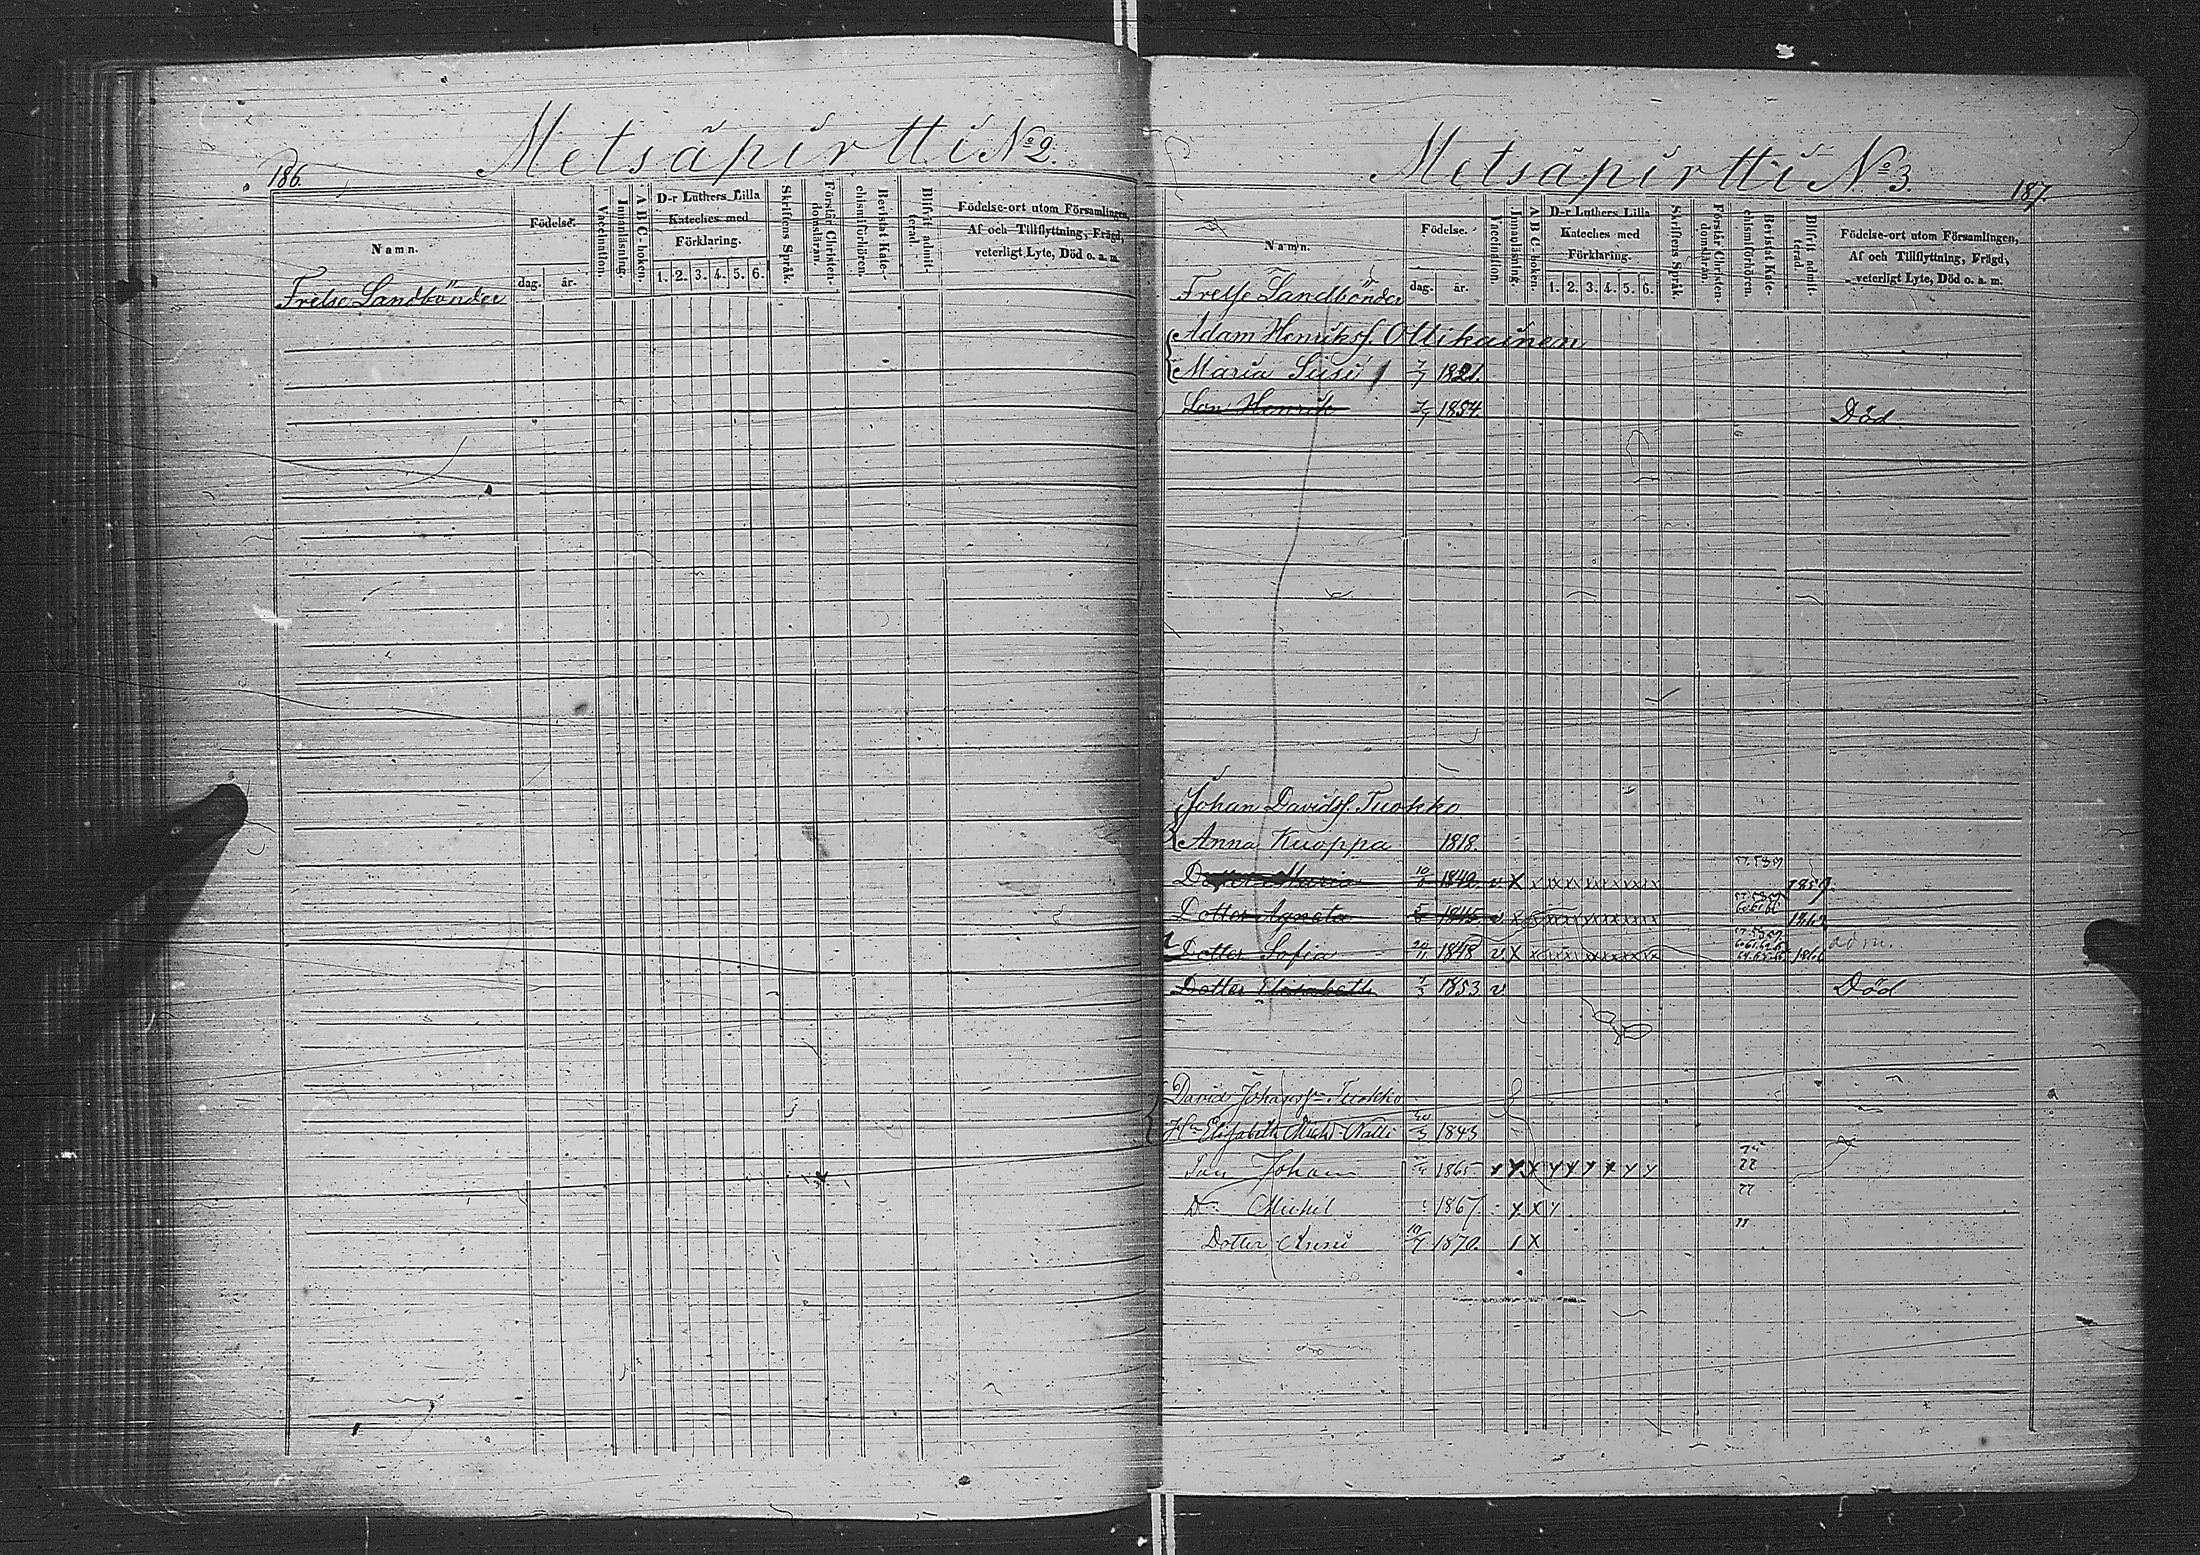 186.
Metsäpirtti No 2.
Namn.
Födelse.
dag.
år.
Vaccination.
Innanläsning.
A B C-boken.
D-r Luthers Lilla
Kateches med
Förklaring.
1. 2. 3. 4. 5. 6.
Skriftens Språk.
Förstår Christen-
domsläran.
Bevistat Kate-
chismiförhören.
Blifvit admit-
terad.
Födelse-ort utom Församlingen,
Af och Tillflyttning, Frägd,
veterligt Lyte, Död o. a. m.
Frelse Landbönder
Metsäpirtti No 3.
187.
Namn.
Födelse.
dag.
år.
Vaccination.
Innanläsning.
A B C-boken.
D-r Luthers Lilla
Kateches med
Förklaring.
1. 2. 3. 4. 5. 6.
Skriftens Språk.
Förstår Christen-
domsläran.
Bevistat Kate-
chismiförhören.
Blifvit admit-
terad.
Födelse-ort utom Församlingen,
Af och Tillflyttning, Frägd,
veterligt Lyte, Död o. a. m.
Frelse Landbönder
Adam Henrikss. Ollikainen
Maria Susi 1821.
Son Henrik 1854. Död
Johan Davidss. Tuokko
Anna Kuoppa 1818.
Dotter Maria 1842 v X x x x x x x x x 57.58.59 1859.
Dotter Agneta 1845 v x x x x x x x x x 57.58.59 1862
Dotter Sofia 1848 v X x x x x x x x x 57.58.59 1866 adm.
Dotter Elisabeth 1853 v. Död
David Johanss:n Tuokko
H:u Elisabeth Mich. Nalli 1843
Son Johan 1865 x X X x x x x x x 77
D:o Michel 1867. x X x 77
Dotter Anni 19/7 1870. / X 77